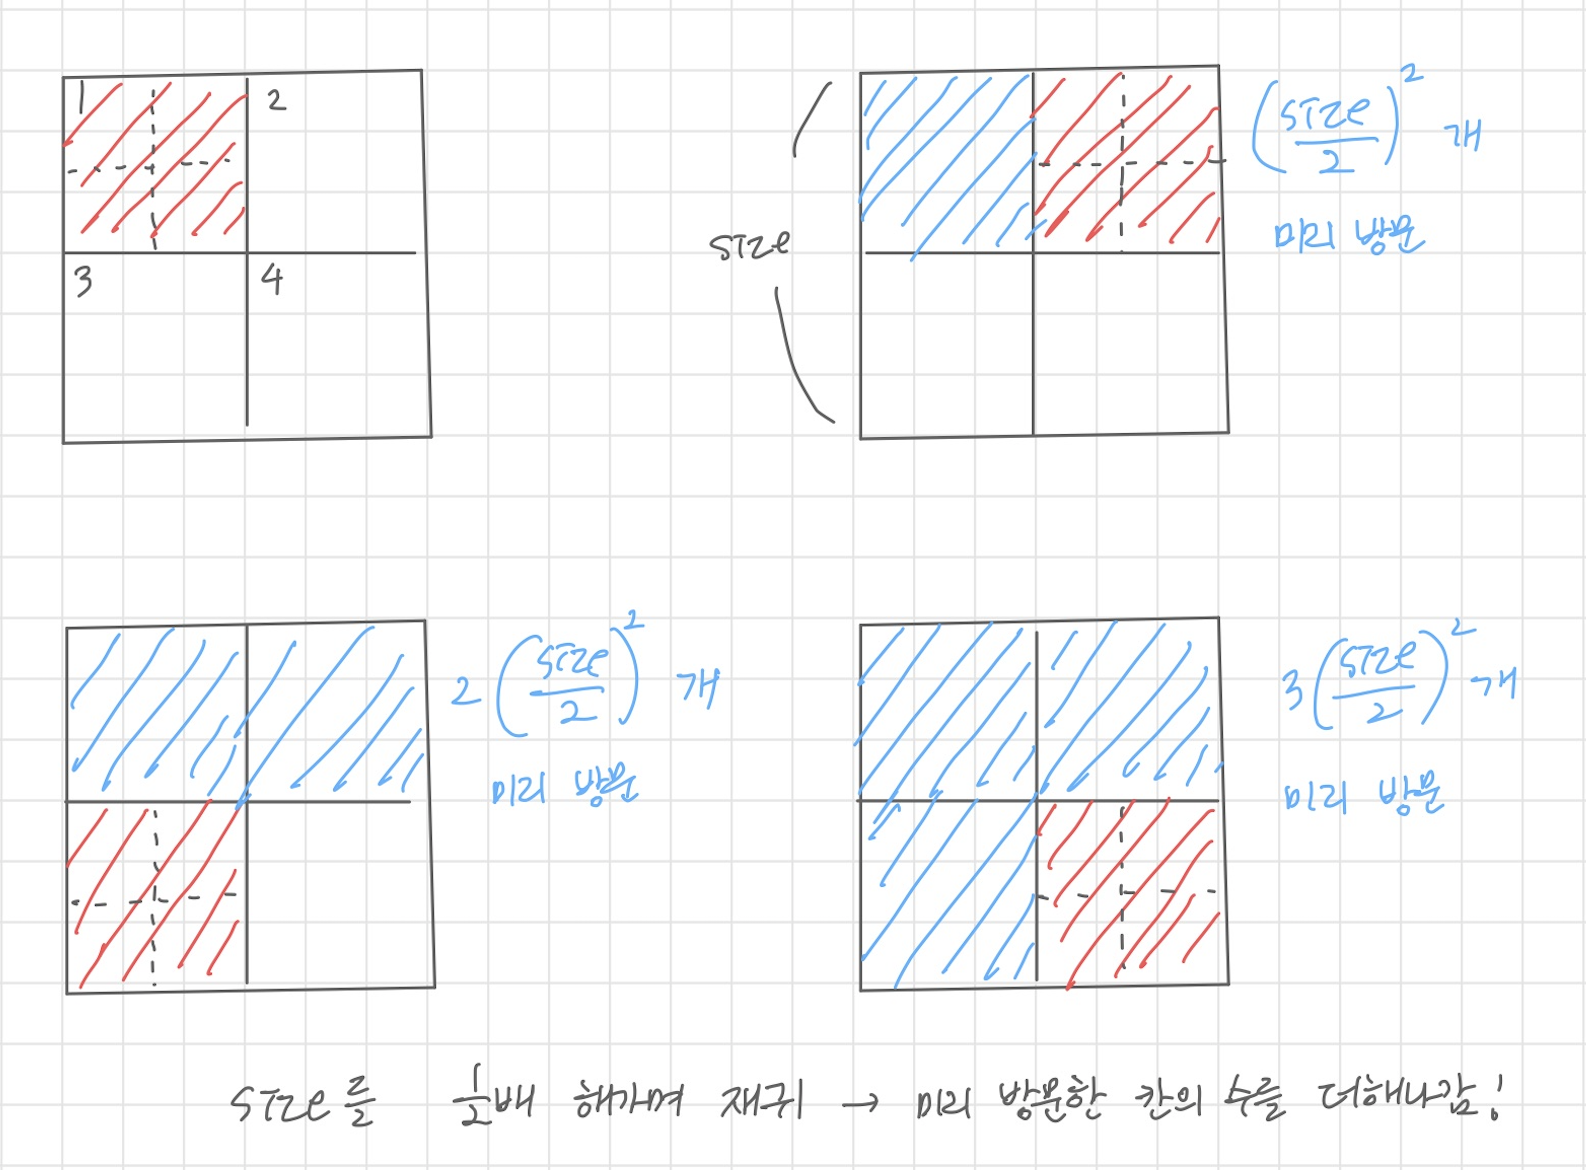 1
2
3
4
size
(size/2)² 개
미리 방문
2(size/2)² 개
미리 방문
3(size/2)² 개
미리 방문
size를 1/2배 해가며 재귀 → 미리 방문한 칸의 수를 더해나감!